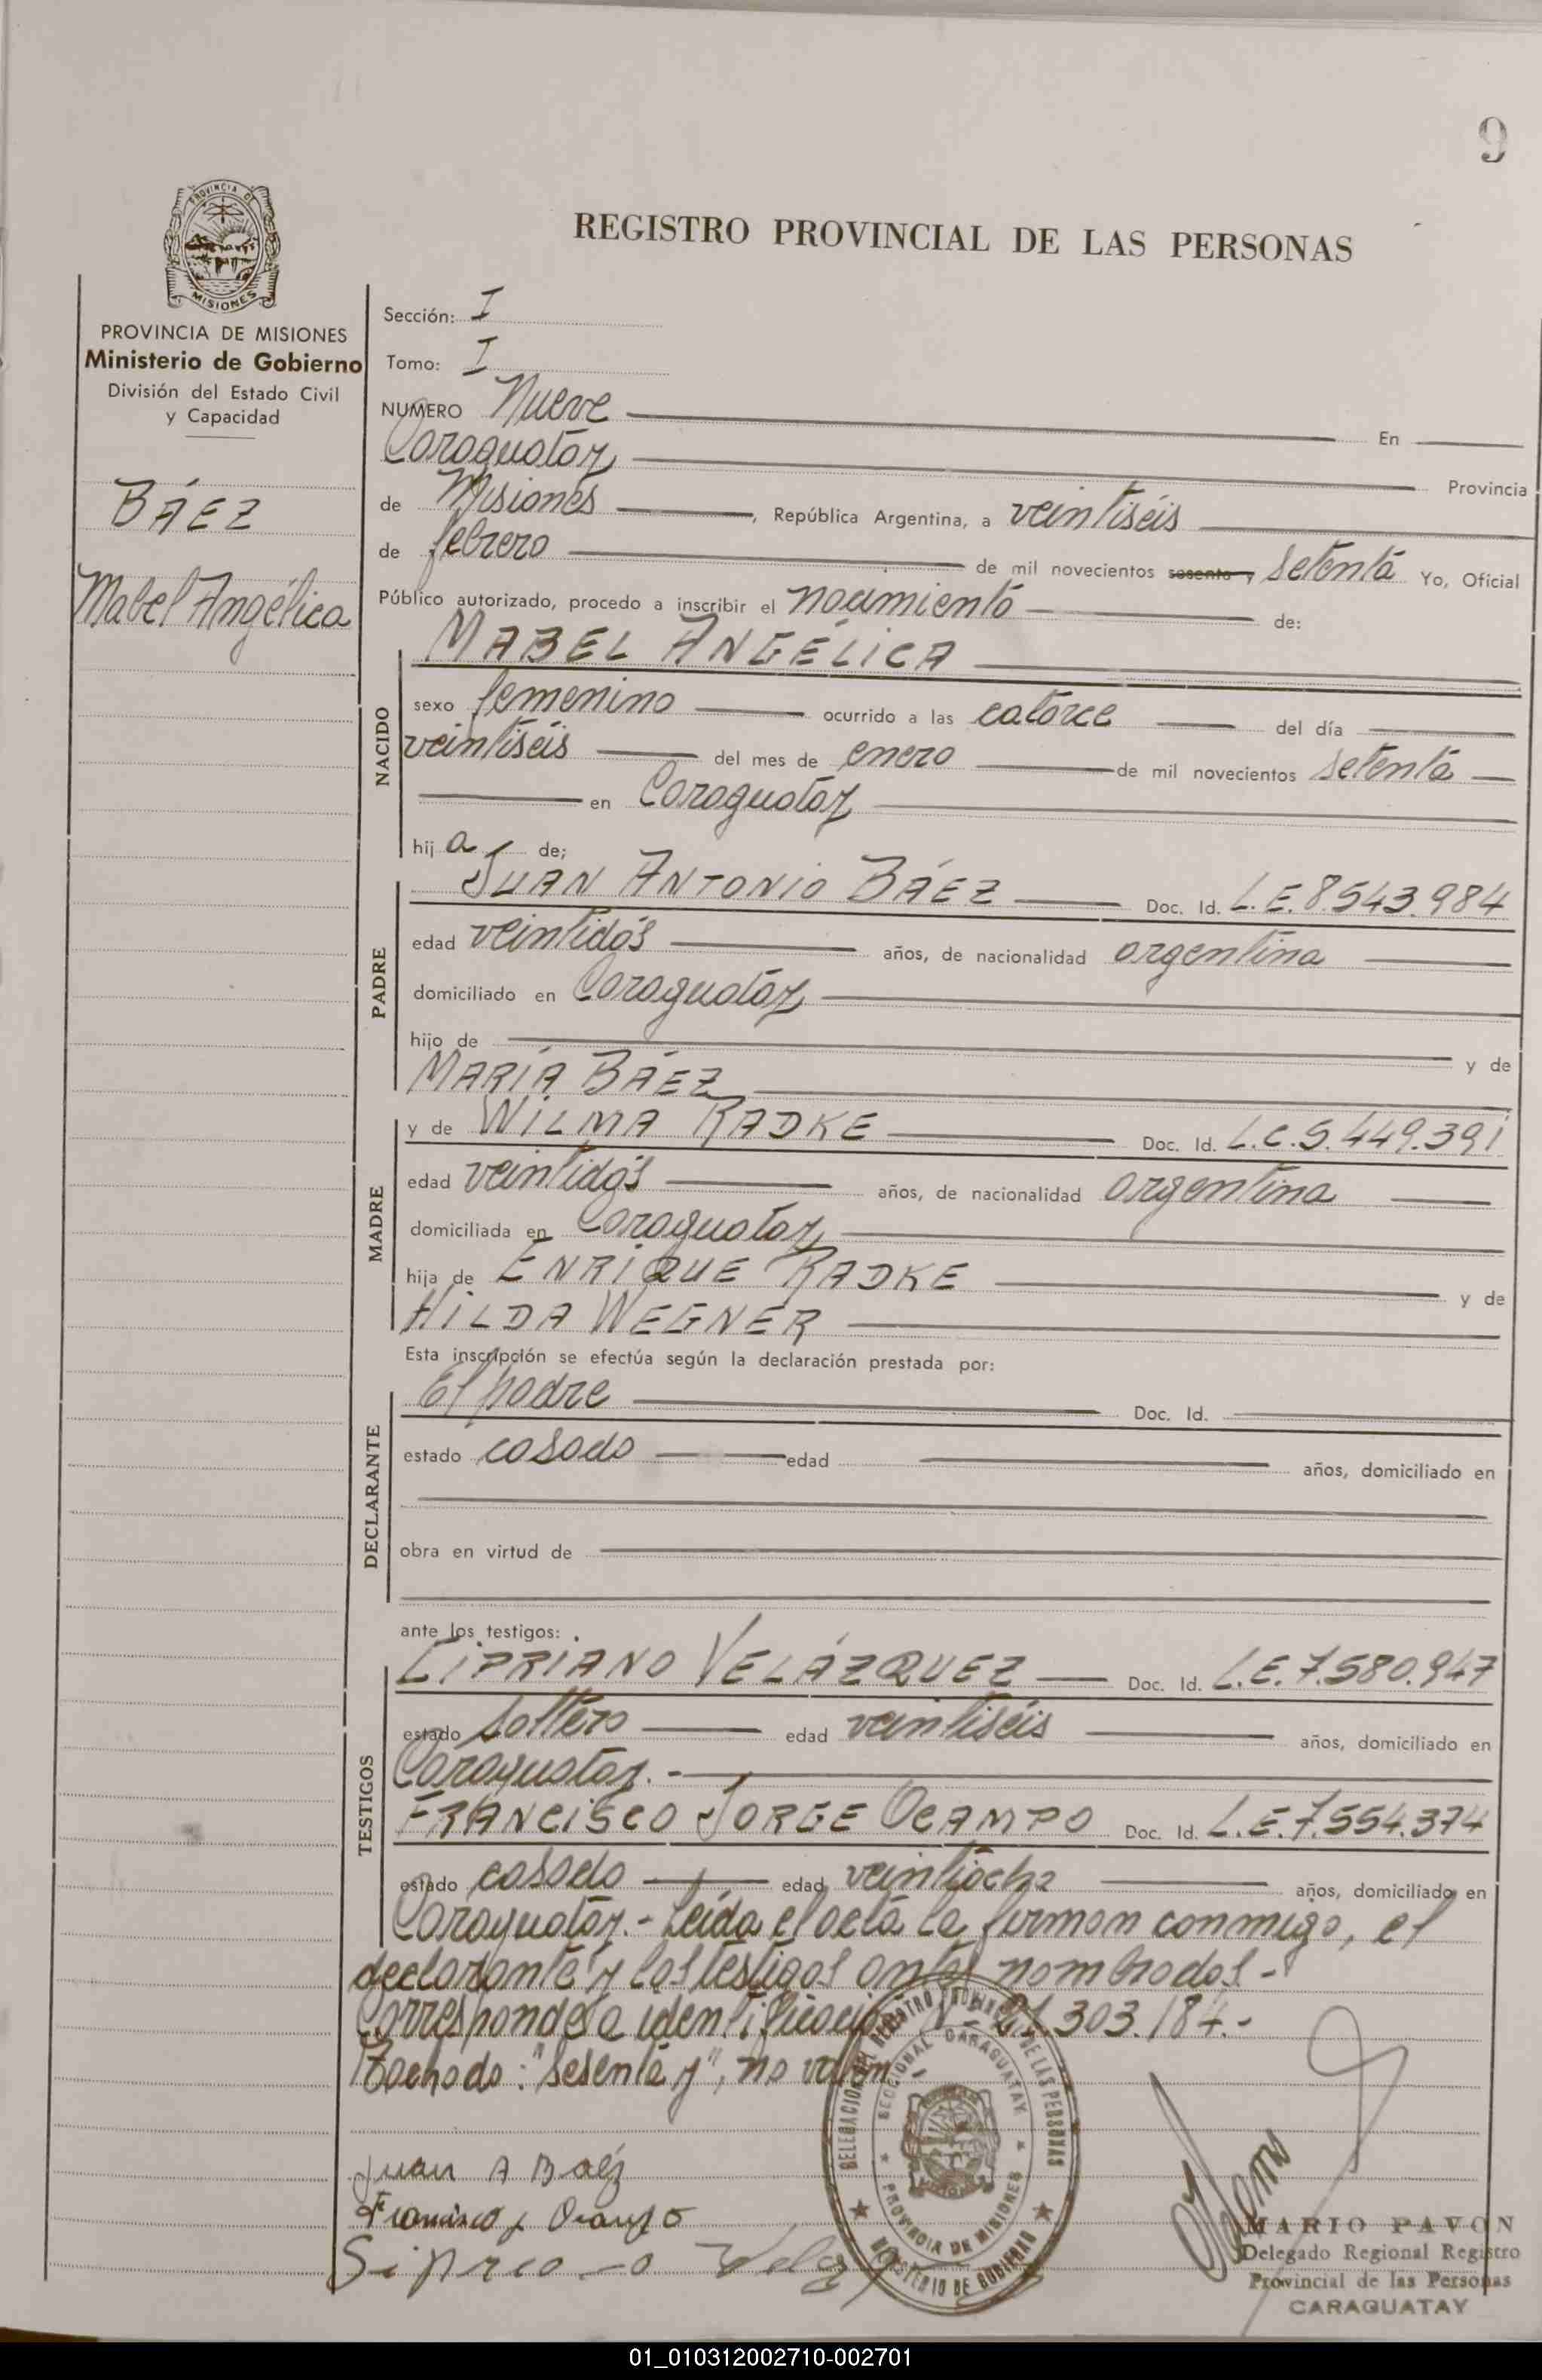 9
PROVINCIA DE
MISIONES
REGISTRO PROVINCIAL DE LAS PERSONAS
PROVINCIA DE MISIONES
Ministerio de Gobierno
División del Estado Civil
y Capacidad
BÁEZ
Mabel Angélica
Sección: I
Tomo: I
NUMERO Nueve En
Caraguatay Provincia
de Misiones, República Argentina, a veintiséis
de febrero de mil novecientos sesenta y setenta Yo, Oficial
Público autorizado, procedo a inscribir el nacimiento de:
NACIDO
MABEL ANGÉLICA
sexo femenino ocurrido a las catorce del día
veintiséis del mes de enero de mil novecientos setenta
en Caraguatay
hij a de;
PADRE
JUAN ANTONIO BÁEZ Doc. Id. L.E. 8.543.984
edad veintidós años, de nacionalidad argentina
domiciliado en Caraguatay
hijo de y de
MARÍA BÁEZ
MADRE
y de WILMA RADKE Doc. Id. L.C. 5.449.391
edad veintidós años, de nacionalidad argentina
domiciliada en Caraguatay
hija de ENRIQUE RADKE y de
HILDA WEGNER
Esta inscripción se efectúa según la declaración prestada por:
DECLARANTE
El padre Doc. Id.
estado casado edad años, domiciliado en
obra en virtud de
ante los testigos:
TESTIGOS
CIPRIANO VELÁZQUEZ Doc. Id. L.E. 7.580.947
estado soltero edad veintiséis años, domiciliado en
Caraguatay.-
FRANCISCO JORGE OCAMPO Doc. Id. L.E. 7.554.374
estado casado edad veintiocho años, domiciliado en
Caraguatay.- Leída el acta la firman conmigo, el
declarante y los testigos antes nombrados.-
Corresponde a identificación N° 21.303.184.-
Tachado: "sesenta y", no valen.-
DELEGACION DEL REGISTRO PROVINCIAL DE LAS PERSONAS
SECCIONAL CARAGUATAY
PROVINCIA DE MISIONES
MINISTERIO DE GOBIERNO
Juan A Baéz
Francisco J Ocampo
MARIO PAVON
Delegado Regional Registro
Provincial de las Personas
CARAGUATAY
01_010312002710-002701